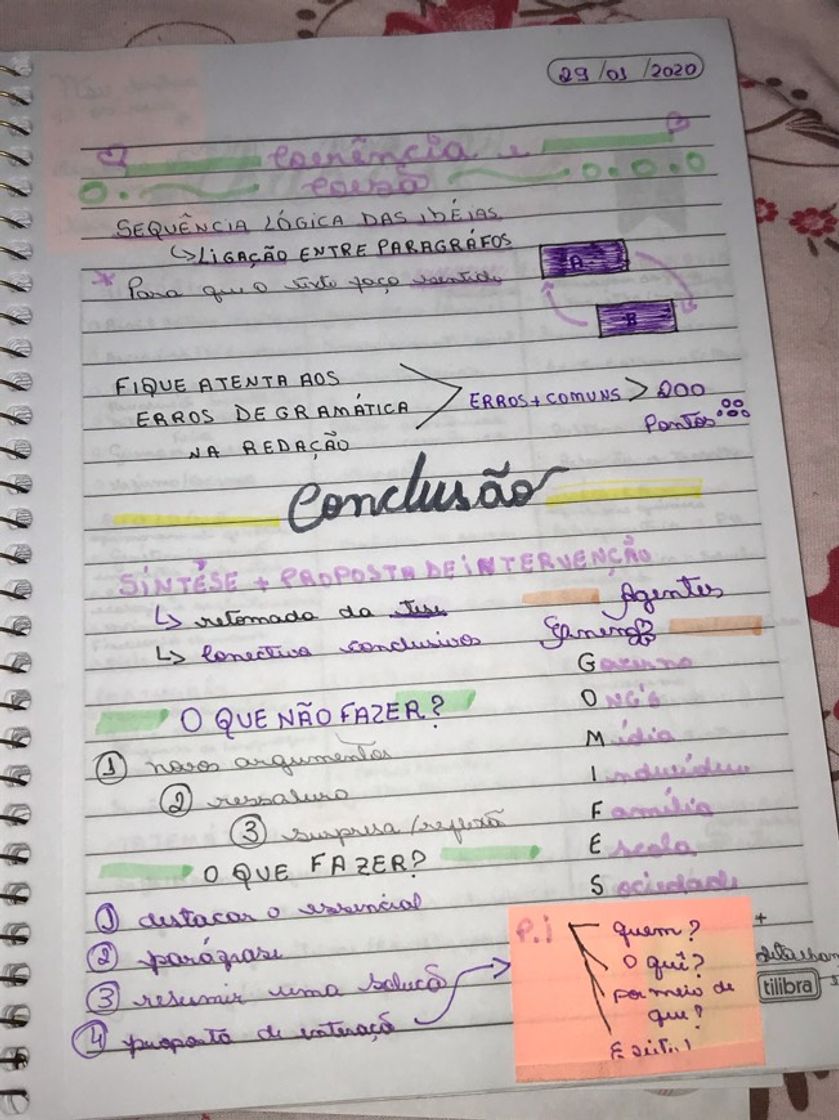 29/01/2020
Coerência e
coesã
SEQUÊNCIA LÓGICA DAS IDÉIAS
↳ LIGAÇÃO ENTRE PARAGRÁFOS
* Para que o texto faça sentido
A
B
FIQUE ATENTA AOS
ERROS DE GRAMÁTICA
NA REDAÇÃO
ERROS + COMUNS > 200
Pontos
Conclusão
SÍNTESE + PROPOSTA DE INTERVENÇÃO
↳ retomada da tese
↳ Conectivo conclusivos
Agentes
Governo
ONG's
Mídia
Indivíduo
Família
Escola
Sociedade
O QUE NÃO FAZER?
① novos argumentos
② ressalva
③ surpresa/reflexã
O QUE FAZER?
① destacar o essencial
② paráfrase
③ resumir uma soluçã
④ proposta de
P.i
quem?
O quê?
por meio de
que?
+
tilibra